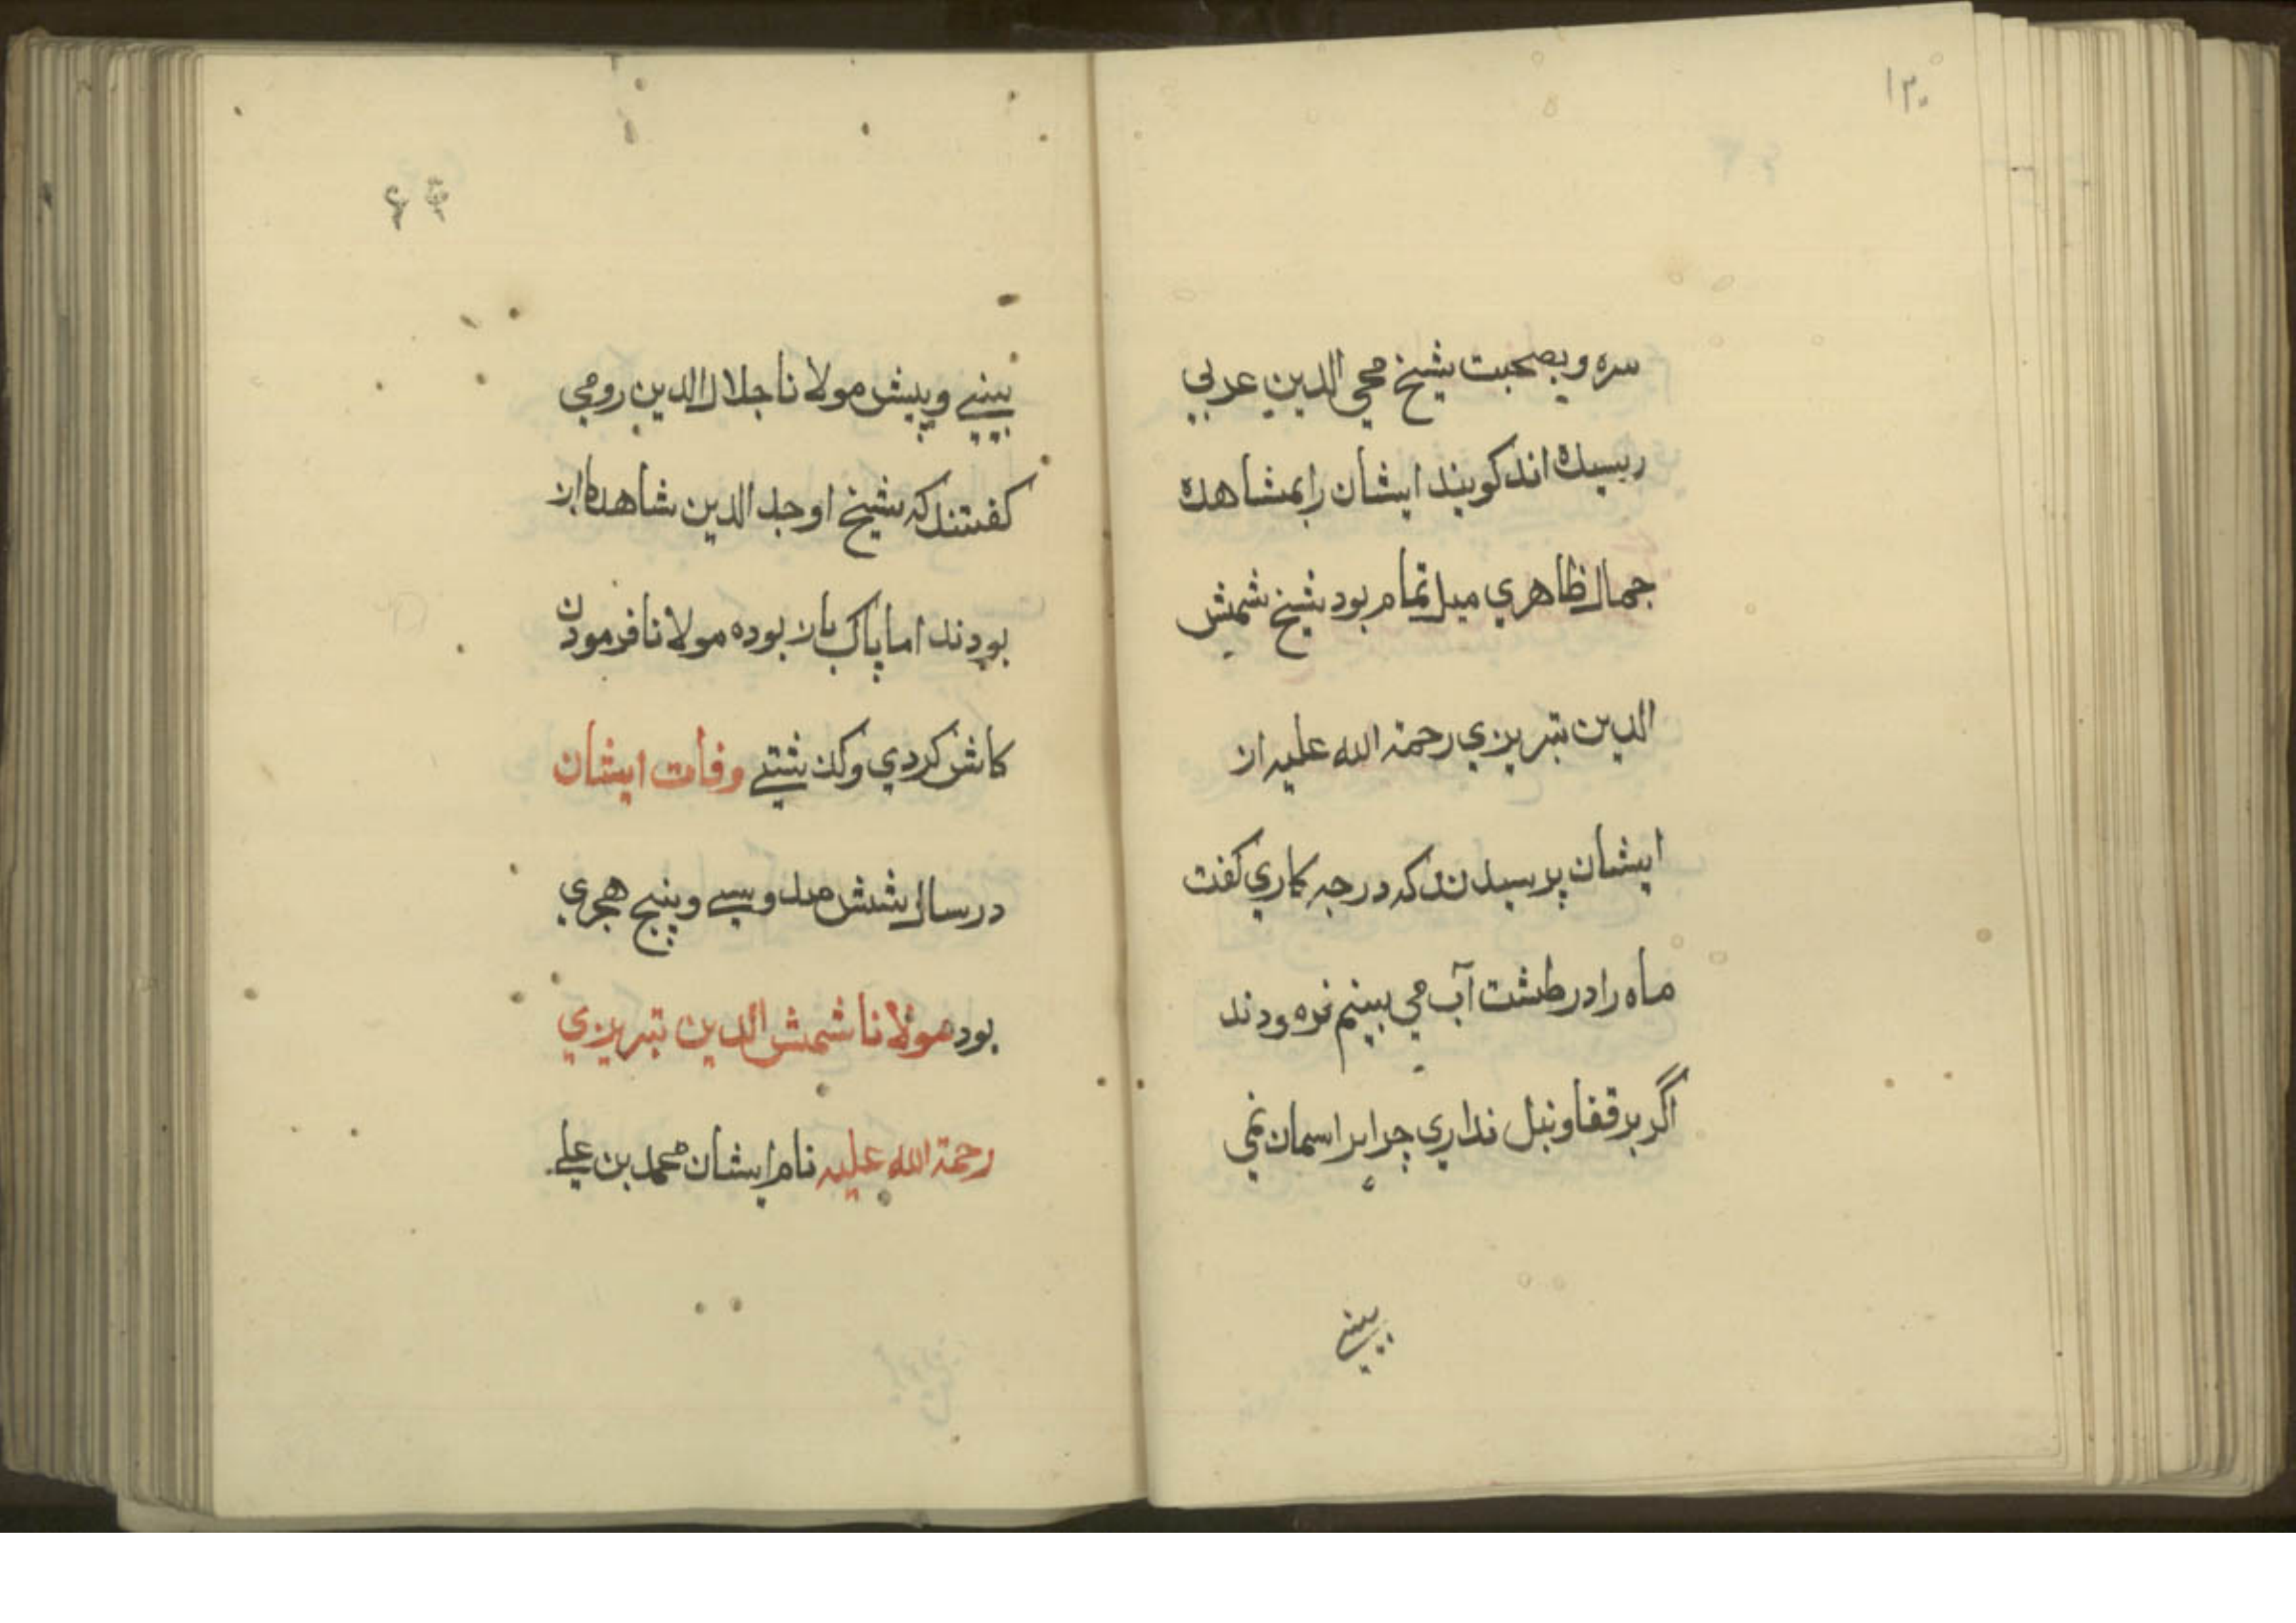 ۱۳۰
سره وبصحبت شیخ محی الدین عربی
رسیده اند کویند ایشان را بمشاهده
جمال ظاهری میل تمام بود شیخ شمش
الدین تبریزی رحمة الله علیه از
ایشان پرسیدند که درچه کاری کفت
ماه را در طشت آب می بینم فرمودند
اگر بر قفا ونبل نداری چرا بر اسمان نمی
بینے
بینے وپیش مولانا جلال الدین رومی
کفتند که شیخ اوحد الدین شاهد باز
بودند اما پاک باز بوده مولانا فرمودن
کاش کردی وکذشتے وفات ایشان
در سال شش صد و سے وپنج هجری
بود مولانا شمش الدین تبریزی
رحمة الله علیه نام ایشان محمد بن علے